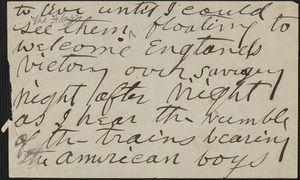 to live until I could
see them, floating to
welcome England's
victory over savagry
night after night
as I hear the rumble
of the trains bearing
the American boys